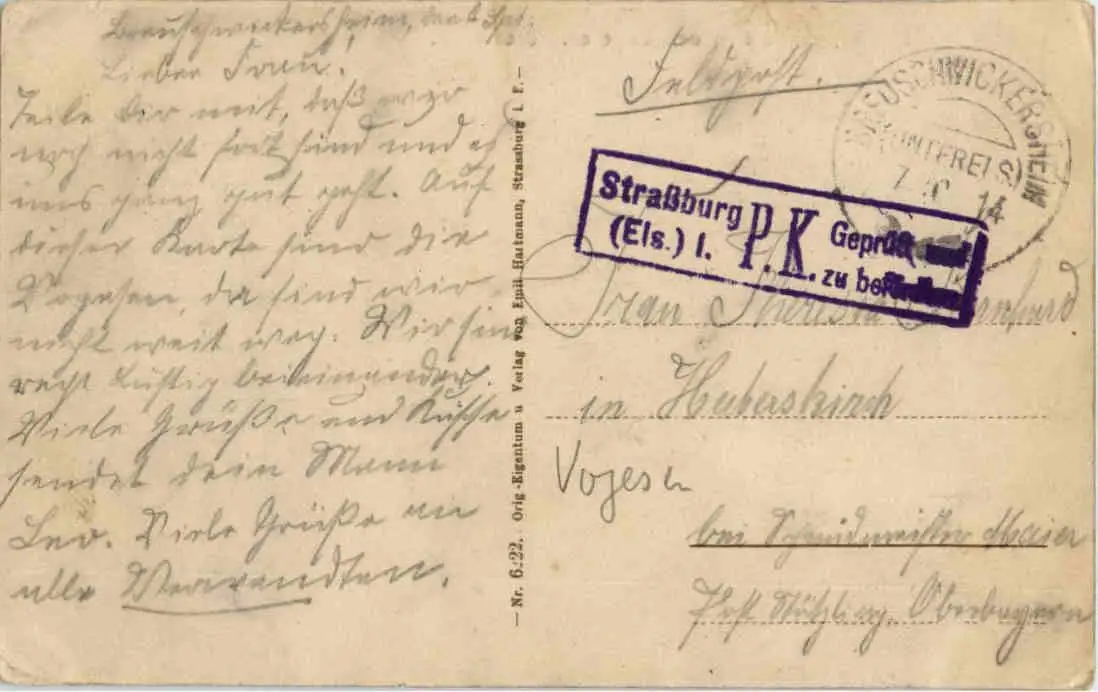 Breuschwickersheim, den 6.
Liebe Frau!
Teile Dir mit, daß wir
noch nicht fort sind und es
uns ganz gut geht. Auf
dieser Karte sind die
Vogesen, da sind wir
nicht weit weg. Wir sin
recht lustig beieinander.
Viele Grüße und Küsse
sendet dein Mann
Leo. Viele Grüße an
alle Verwandten.
— Nr. 6122. Orig.-Eigentum u Verlag von Emil Hartmann, Strassburg i. E. —
Feldpost.
BREUSCHWICKERSHEIM
(UNTERELS)
7 14
Straßburg P.K. Geprüft und
(Els.) I. zu befördern
Frau Theresia
in Haberskirch
Vogesen
bei Schmidmeister Maier
Post Stätzling, Oberbayern